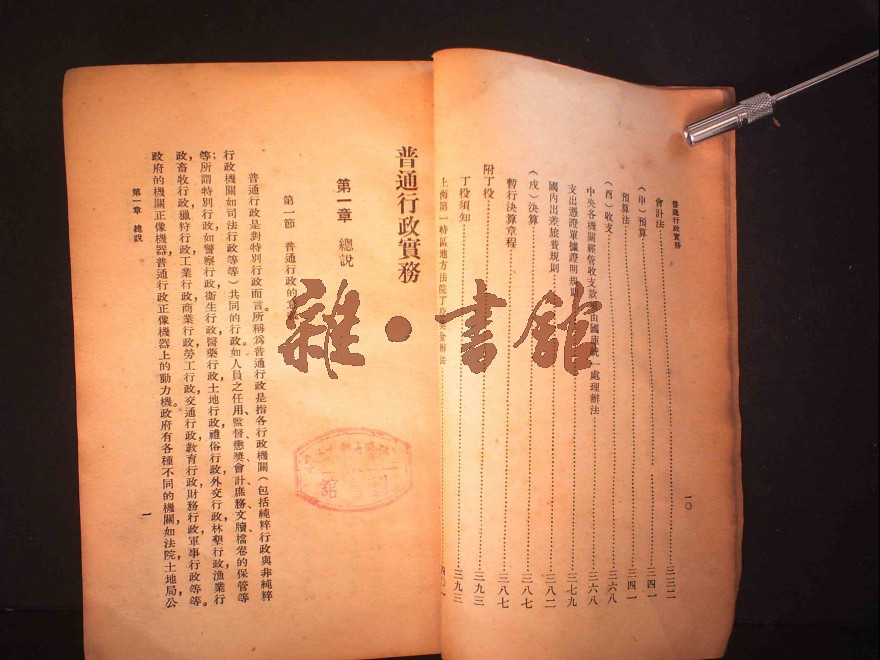 普通行政實務
會計法……三三二
(甲)預算……三四一
預算法……三四一
(酉)收支……三六八
中央各機關經管收支款由國庫統一處理辦法……三六八
支出憑證單據證明規則……三七九
國內出差旅費規則……三八二
(戌)決算……三八七
暫行決算章程……三八七
附丁役……三九三
丁役須知……三九三
上海第一特區地方法院丁役
一〇
普通行政實務
第一章 總說
第一節 普通行政的意
普通行政是對特別行政而言。所稱爲普通行政是指各行政機關(包括純粹行政與非純粹
行政機關如司法行政等等)共同的行政。如人員之任用、監督、懲獎、會計、庶務、文牘、檔卷的保管等
等;所謂特別行政,如警察行政,衞生行政,醫藥行政,土地行政,禮俗行政,外交行政,林墾行政,漁業行
政,畜牧行政,獵狩行政,工業行政,商業行政,勞工行政,交通行政,教育行政,財務行政,軍事行政等等。
政府的機關正像機器,普通行政正像機器上的動力機。政府有各種不同的機關,如法院,土地局,公
第一章 總說
一
雜·書館